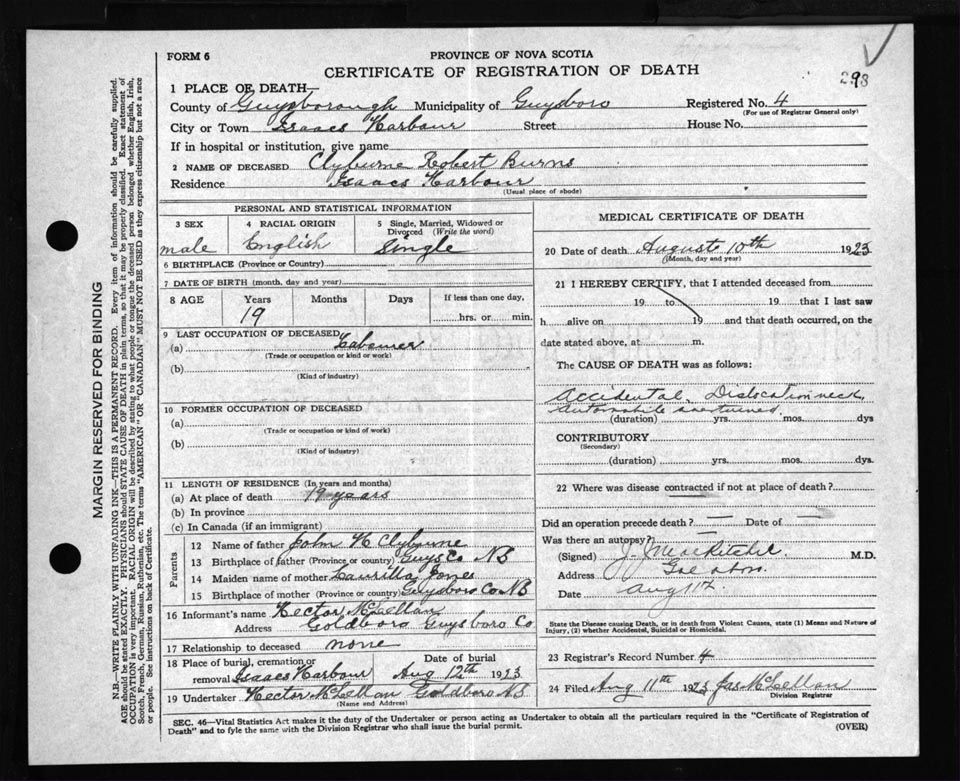 FORM 6
PROVINCE OF NOVA SCOTIA
CERTIFICATE OF REGISTRATION OF DEATH
298
1 PLACE OF DEATH—
County of Guysborough Municipality of Guysboro Registered No. 4
(For use of Registrar General only)
City or Town Isaacs Harbour Street House No.
If in hospital or institution, give name
2 NAME OF DECEASED Clyburne Robert Burns
Residence Isaacs Harbour
(Usual place of abode)
MARGIN RESERVED FOR BINDING
N.B.—WRITE PLAINLY WITH UNFADING INK—THIS IS A PERMANENT RECORD. Every item of information should be carefully supplied.
AGE should be stated EXACTLY. PHYSICIANS should STATE CAUSE OF DEATH in plain terms, so that it may be properly classified. Exact statement of
OCCUPATION is very important. RACIAL ORIGIN will be described by stating to what people or tongue the deceased person belonged whether English, Irish,
Scotch, French, German, Russian, Ruthenian, etc. The terms "AMERICAN" OR "CANADIAN" MUST NOT BE USED as they express citizenship but not a race
or people. See instructions on back of Certificate.
PERSONAL AND STATISTICAL INFORMATION
3 SEX 4 RACIAL ORIGIN 5 Single, Married, Widowed or
Divorced (Write the word)
male English Single
6 BIRTHPLACE (Province or Country)
7 DATE OF BIRTH (month, day and year)
8 AGE Years Months Days If less than one day,
19 hrs. or min.
9 LAST OCCUPATION OF DECEASED
(a) Labourer
(Trade or occupation or kind or work)
(b)
(Kind of industry)
10 FORMER OCCUPATION OF DECEASED
(a)
(Trade or occupation or kind of work)
(b)
(Kind of industry)
11 LENGTH OF RESIDENCE (In years and months)
(a) At place of death 19 years
(b) In province
(c) In Canada (if an immigrant)
Parents
12 Name of father John H Clyburne
13 Birthplace of father (Province or country) Guys Co NS
14 Maiden name of mother Laurilla Jones
15 Birthplace of mother (Province or country) Guysboro Co NS
16 Informant's name Hector McLellan
Address Goldboro Guysboro Co
17 Relationship to deceased none
18 Place of burial, cremation or Date of burial
removal Isaacs Harbour Aug 12th 1923
19 Undertaker Hector McLellan Goldboro NS
(Name and Address)
MEDICAL CERTIFICATE OF DEATH
20 Date of death August 10th 1923
(Month, day and year)
21 I HEREBY CERTIFY, that I attended deceased from
19 to 19 that I last saw
h alive on 19 and that death occurred, on the
date stated above, at m.
The CAUSE OF DEATH was as follows:
Accidental. Dislocation neck
Automobile overturned.
(duration) yrs. mos. dys
CONTRIBUTORY
(Secondary)
(duration) yrs. mos. days
22 Where was disease contracted if not at place of death?
Did an operation precede death? — Date of —
Was there an autopsy? —
(Signed) J. M. M.D.
Address
Date Aug 11th
State the Disease causing Death, or in death from Violent Causes, state (1) Means and Nature of
Injury, (2) whether Accidental, Suicidal or Homicidal.
23 Registrar's Record Number 4
24 Filed Aug 11th 1923 Jas McLellan
Division Registrar
SEC. 46—Vital Statistics Act makes it the duty of the Undertaker or person acting as Undertaker to obtain all the particulars required in the "Certificate of Registration of
Death" and to fyle the same with the Division Registrar who shall issue the burial permit.
(OVER)